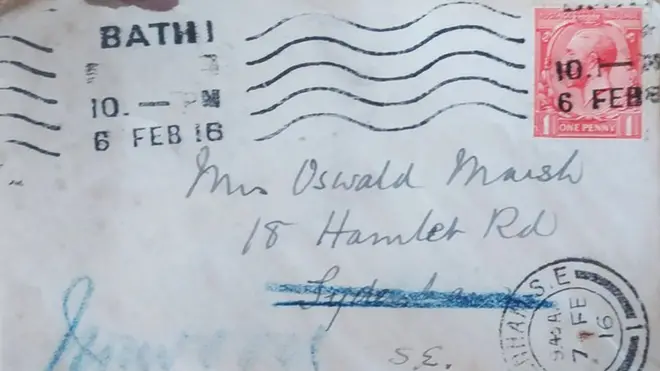 BATH
10. — PM
6 FEB 16
10. —
6 FEB
ONE PENNY
Mrs Oswald Marsh
18 Hamlet Rd
Sydenham
S.E.
HAM S.E.
9.45 A
7 FE
16
1